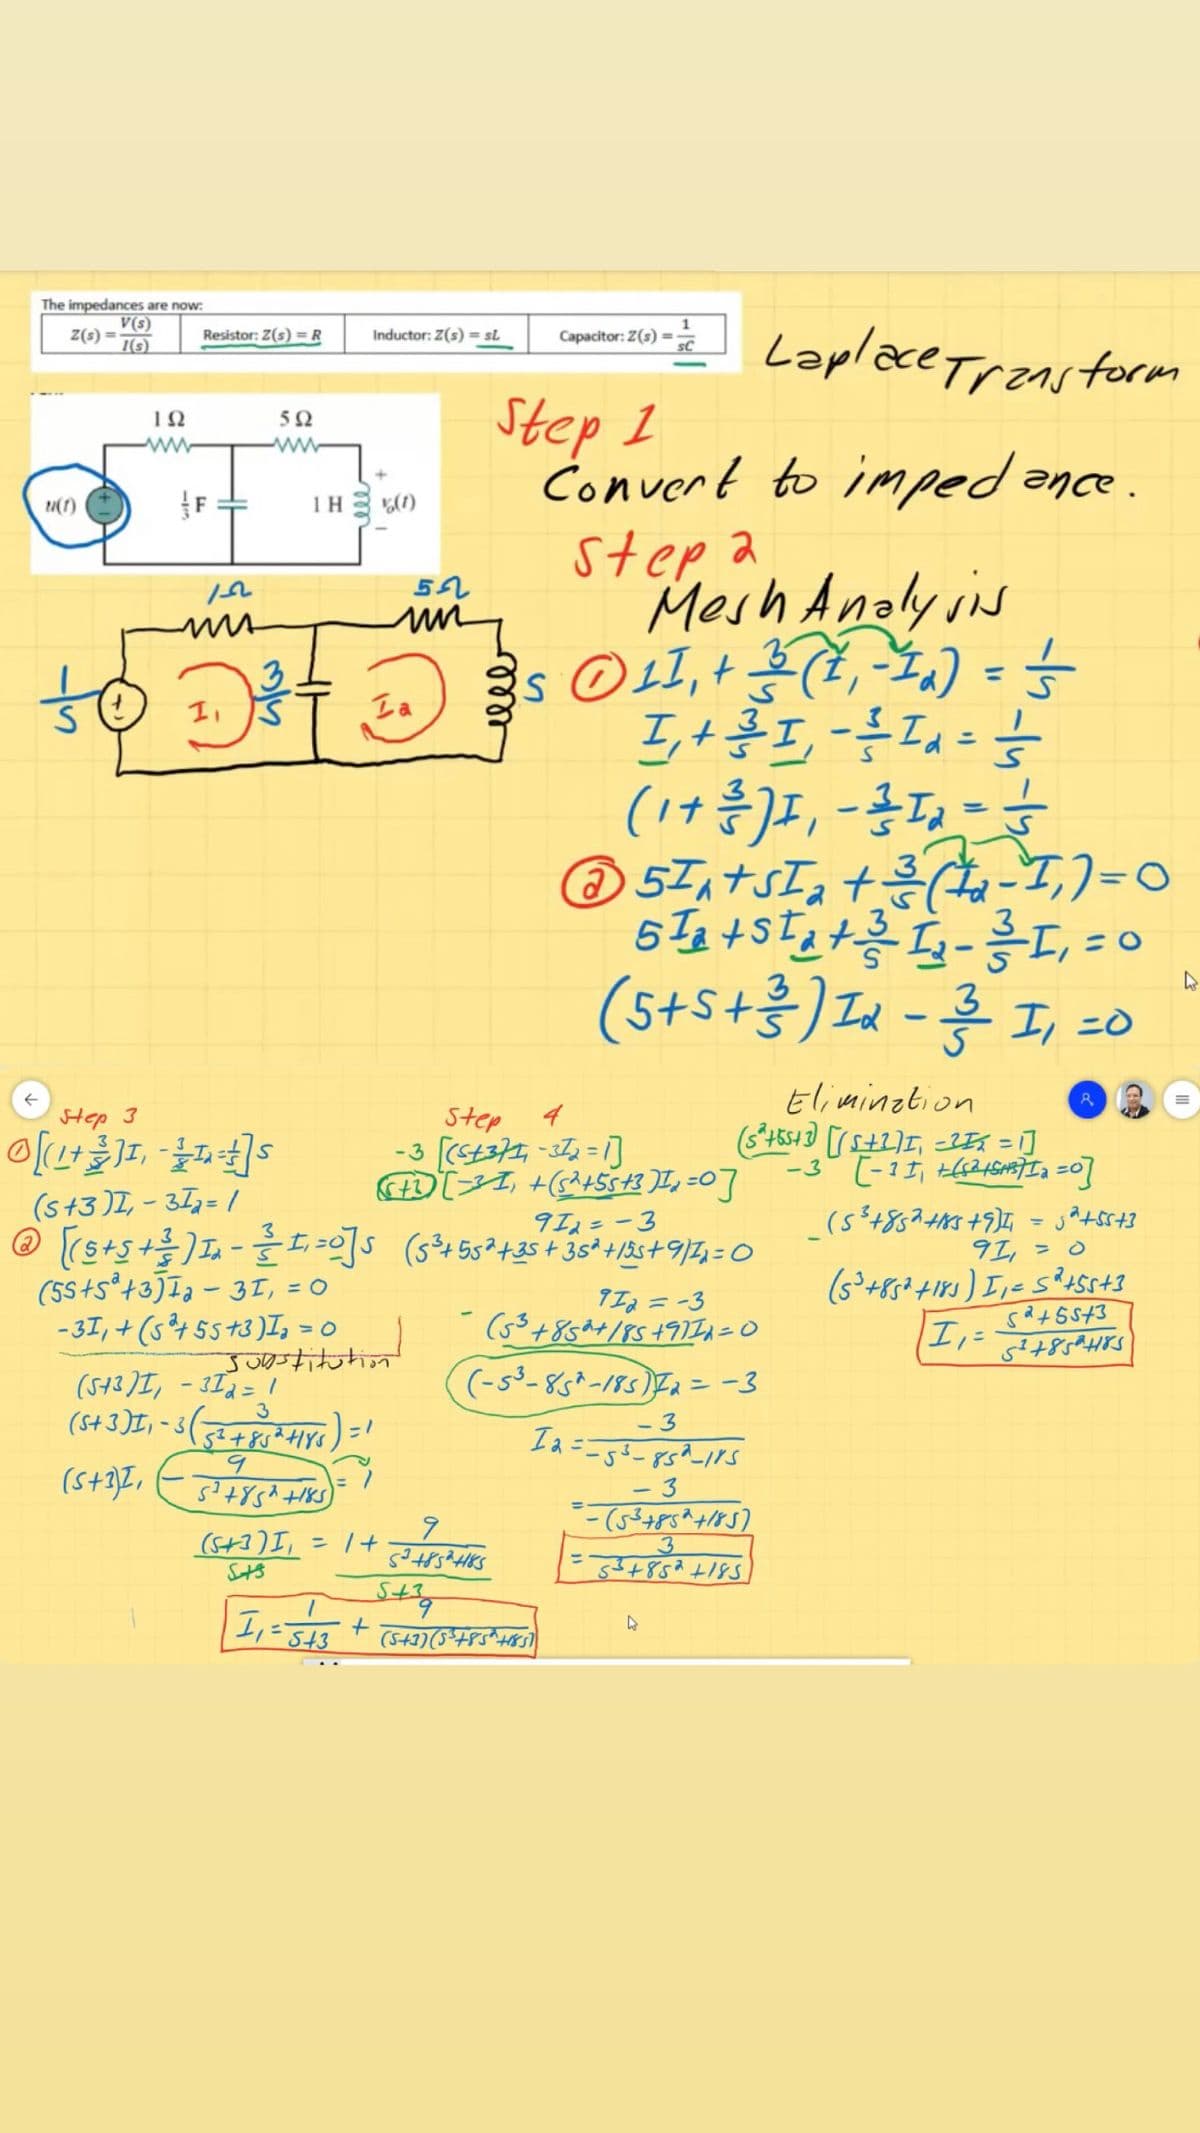 The impedances are now:
Z(s) = V(s)/I(s)
Resistor: Z(s) = R
Inductor: Z(s) = sL
Capacitor: Z(s) = 1/sC
Laplace Transform
1 Ω
5 Ω
u(t)
1/3 F
1 H
+
v₀(t)
−
Step 1
Convert to impedance.
Step 2
Mesh Analysis
1Ω
5Ω
1/s
I₁
3/s
I₂
s
① 1I₁ + 3/s (I₁ - I₂) = 1/s
I₁ + 3/s I₁ - 3/s I₂ = 1/s
(1 + 3/s) I₁ - 3/s I₂ = 1/s
② 5I₂ + sI₂ + 3/s (I₂ - I₁) = 0
5I₂ + sI₂ + 3/s I₂ - 3/s I₁ = 0
(5 + s + 3/s) I₂ - 3/s I₁ = 0
Step 3
① [(1 + 3/s) I₁ - 3/s I₂ = 1/s] s
(s+3) I₁ - 3I₂ = 1
② [(5 + s + 3/s) I₂ - 3/s I₁ = 0] s
(5s + s² + 3) I₂ - 3I₁ = 0
-3I₁ + (s² + 5s + 3) I₂ = 0
substitution
(s+3) I₁ - 3I₂ = 1
(s+3) I₁ - 3 (3/(s³ + 8s² + 18s)) = 1
(s+3) I₁ - 9/(s³ + 8s² + 18s) = 1
(s+3) I₁ = 1 + 9/(s³ + 8s² + 18s)
s+3
s+3
I₁ = 1/(s+3) + 9/((s+3)(s³ + 8s² + 18s))
Step 4
-3 [(s+3) I₁ - 3I₂ = 1]
(s+3) [-3I₁ + (s² + 5s + 3) I₂ = 0]
9I₂ = -3
(s³ + 5s² + 3s + 3s² + 15s + 9) I₂ = 0
9I₂ = -3
- (s³ + 8s² + 18s + 9) I₂ = 0
(-s³ - 8s² - 18s) I₂ = -3
I₂ = -3/(-s³ - 8s² - 18s)
= -3/(-(s³ + 8s² + 18s))
= 3/(s³ + 8s² + 18s)
Elimination
(s² + 5s + 3) [(s+3) I₁ - 3I₂ = 1]
-3 [-3I₁ + (s² + 5s + 3) I₂ = 0]
(s³ + 8s² + 18s + 9) I₁ = s² + 5s + 3
- 9I₁ = 0
(s³ + 8s² + 18s) I₁ = s² + 5s + 3
I₁ = (s² + 5s + 3)/(s³ + 8s² + 18s)